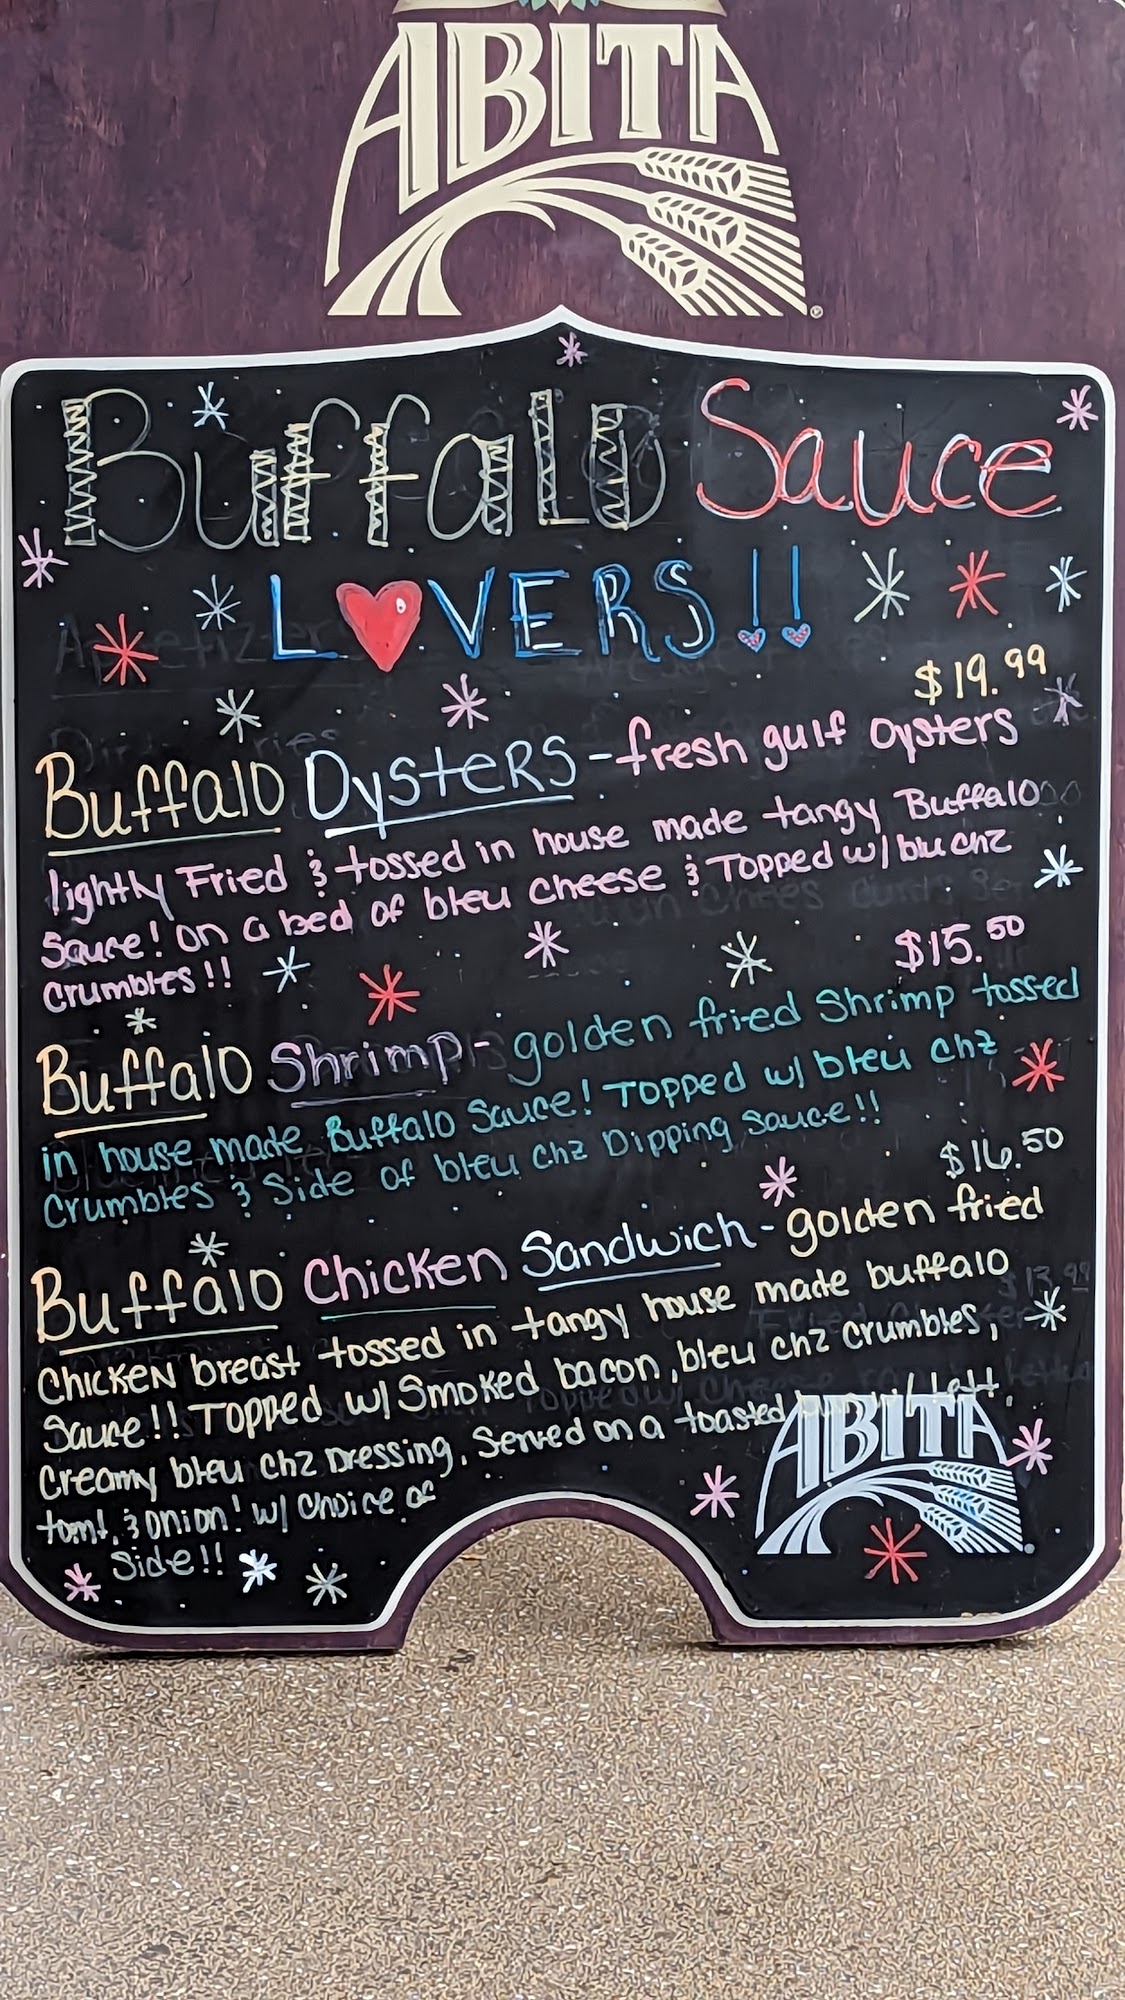 ABITA
Buffalo Sauce
LOVERS!!
$19.99
Buffalo Oysters - fresh gulf oysters
lightly Fried & tossed in house made tangy Buffalo
Sauce! on a bed of bleu cheese & Topped w/ blu chz
Crumbles!!
$15.50
Buffalo Shrimp - golden fried Shrimp tossed
in house made Buffalo Sauce! Topped w/ bleu chz
Crumbles & Side of bleu chz Dipping Sauce!!
$16.50
Buffalo Chicken Sandwich - golden fried
Chicken breast tossed in tangy house made buffalo
Sauce!! Topped w/ Smoked bacon, bleu chz Crumbles,
Creamy bleu chz Dressing, Served on a toasted bun w/ Lett,
tomt, & onion! w/ Choice of
Side!!
ABITA